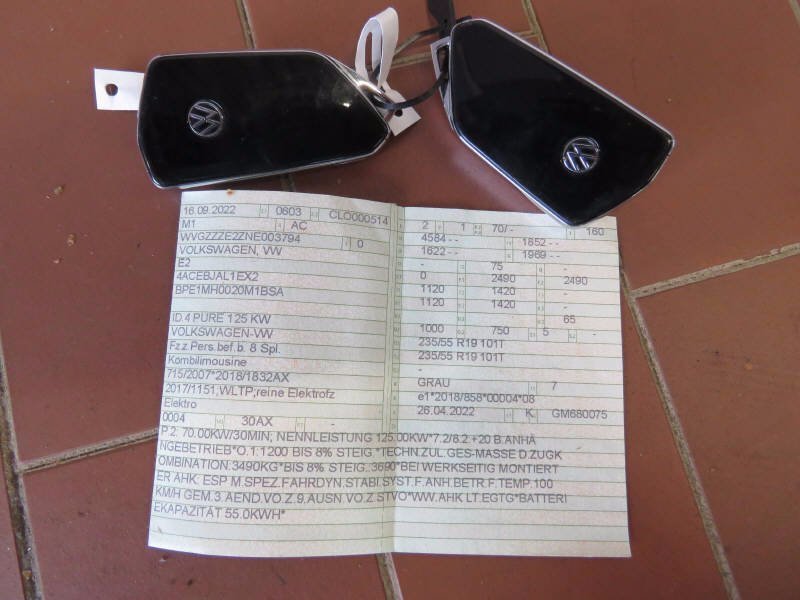 16.09.2022 0603 CLO000514
M1 AC
WVGZZZE2ZNE003794 0
VOLKSWAGEN, VW
E2
4ACEBJAL1EX2
BPE1MH0020M1BSA
ID.4 PURE 125 KW
VOLKSWAGEN-VW
Fz.z.Pers.bef.b. 8 Spl.
Kombilimousine
715/2007*2018/1832AX
2017/1151;WLTP;reine Elektrofz
Elektro
0004 30AX
2 1 70/- 160
4584 - - 1852 - -
1622 - - 1969 - -
- 75 -
0 2490 2490
1120 1420 -
1120 1420 -
- 65
1000 750 5 -
235/55 R19 101T
235/55 R19 101T
-
GRAU 7
e1*2018/858*00004*08
26.04.2022 K GM680075
P.2: 70.00KW/30MIN; NENNLEISTUNG 125.00KW*7.2/8.2:+20 B.ANHÄ
NGEBETRIEB*O.1:1200 BIS 8% STEIG.*TECHN.ZUL.GES-MASSE D.ZUGK
OMBINATION:3490KG*BIS 8% STEIG.:3690*BEI WERKSEITIG MONTIERT
ER AHK: ESP M.SPEZ.FAHRDYN.STABI.SYST.F.ANH.BETR.F.TEMP.100
KM/H GEM.3.AEND.VO.Z.9.AUSN.VO.Z.STVO*WW.AHK LT.EGTG*BATTERI
EKAPAZITÄT 55.0KWH*